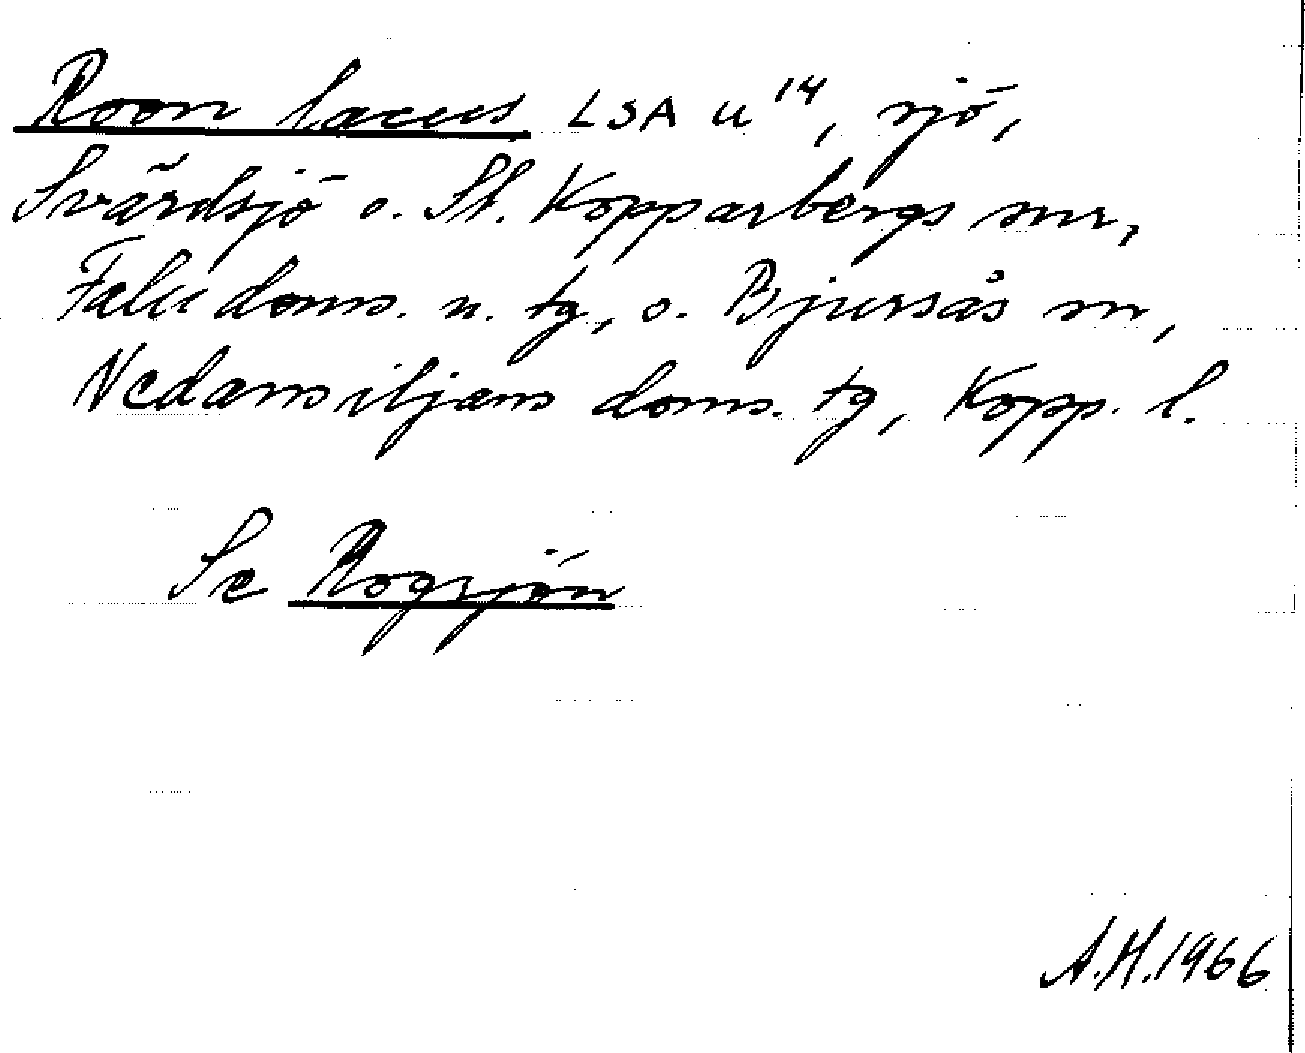 Roon lacus LSA U¹⁴, sjö,
Svärdsjö o. St. Kopparbergs snr,
Falu doms. n. tg, o. Bjursås sn,
Nedansiljans doms. tg, Kopp. l.
Se Rogsjön
A.H. 1966